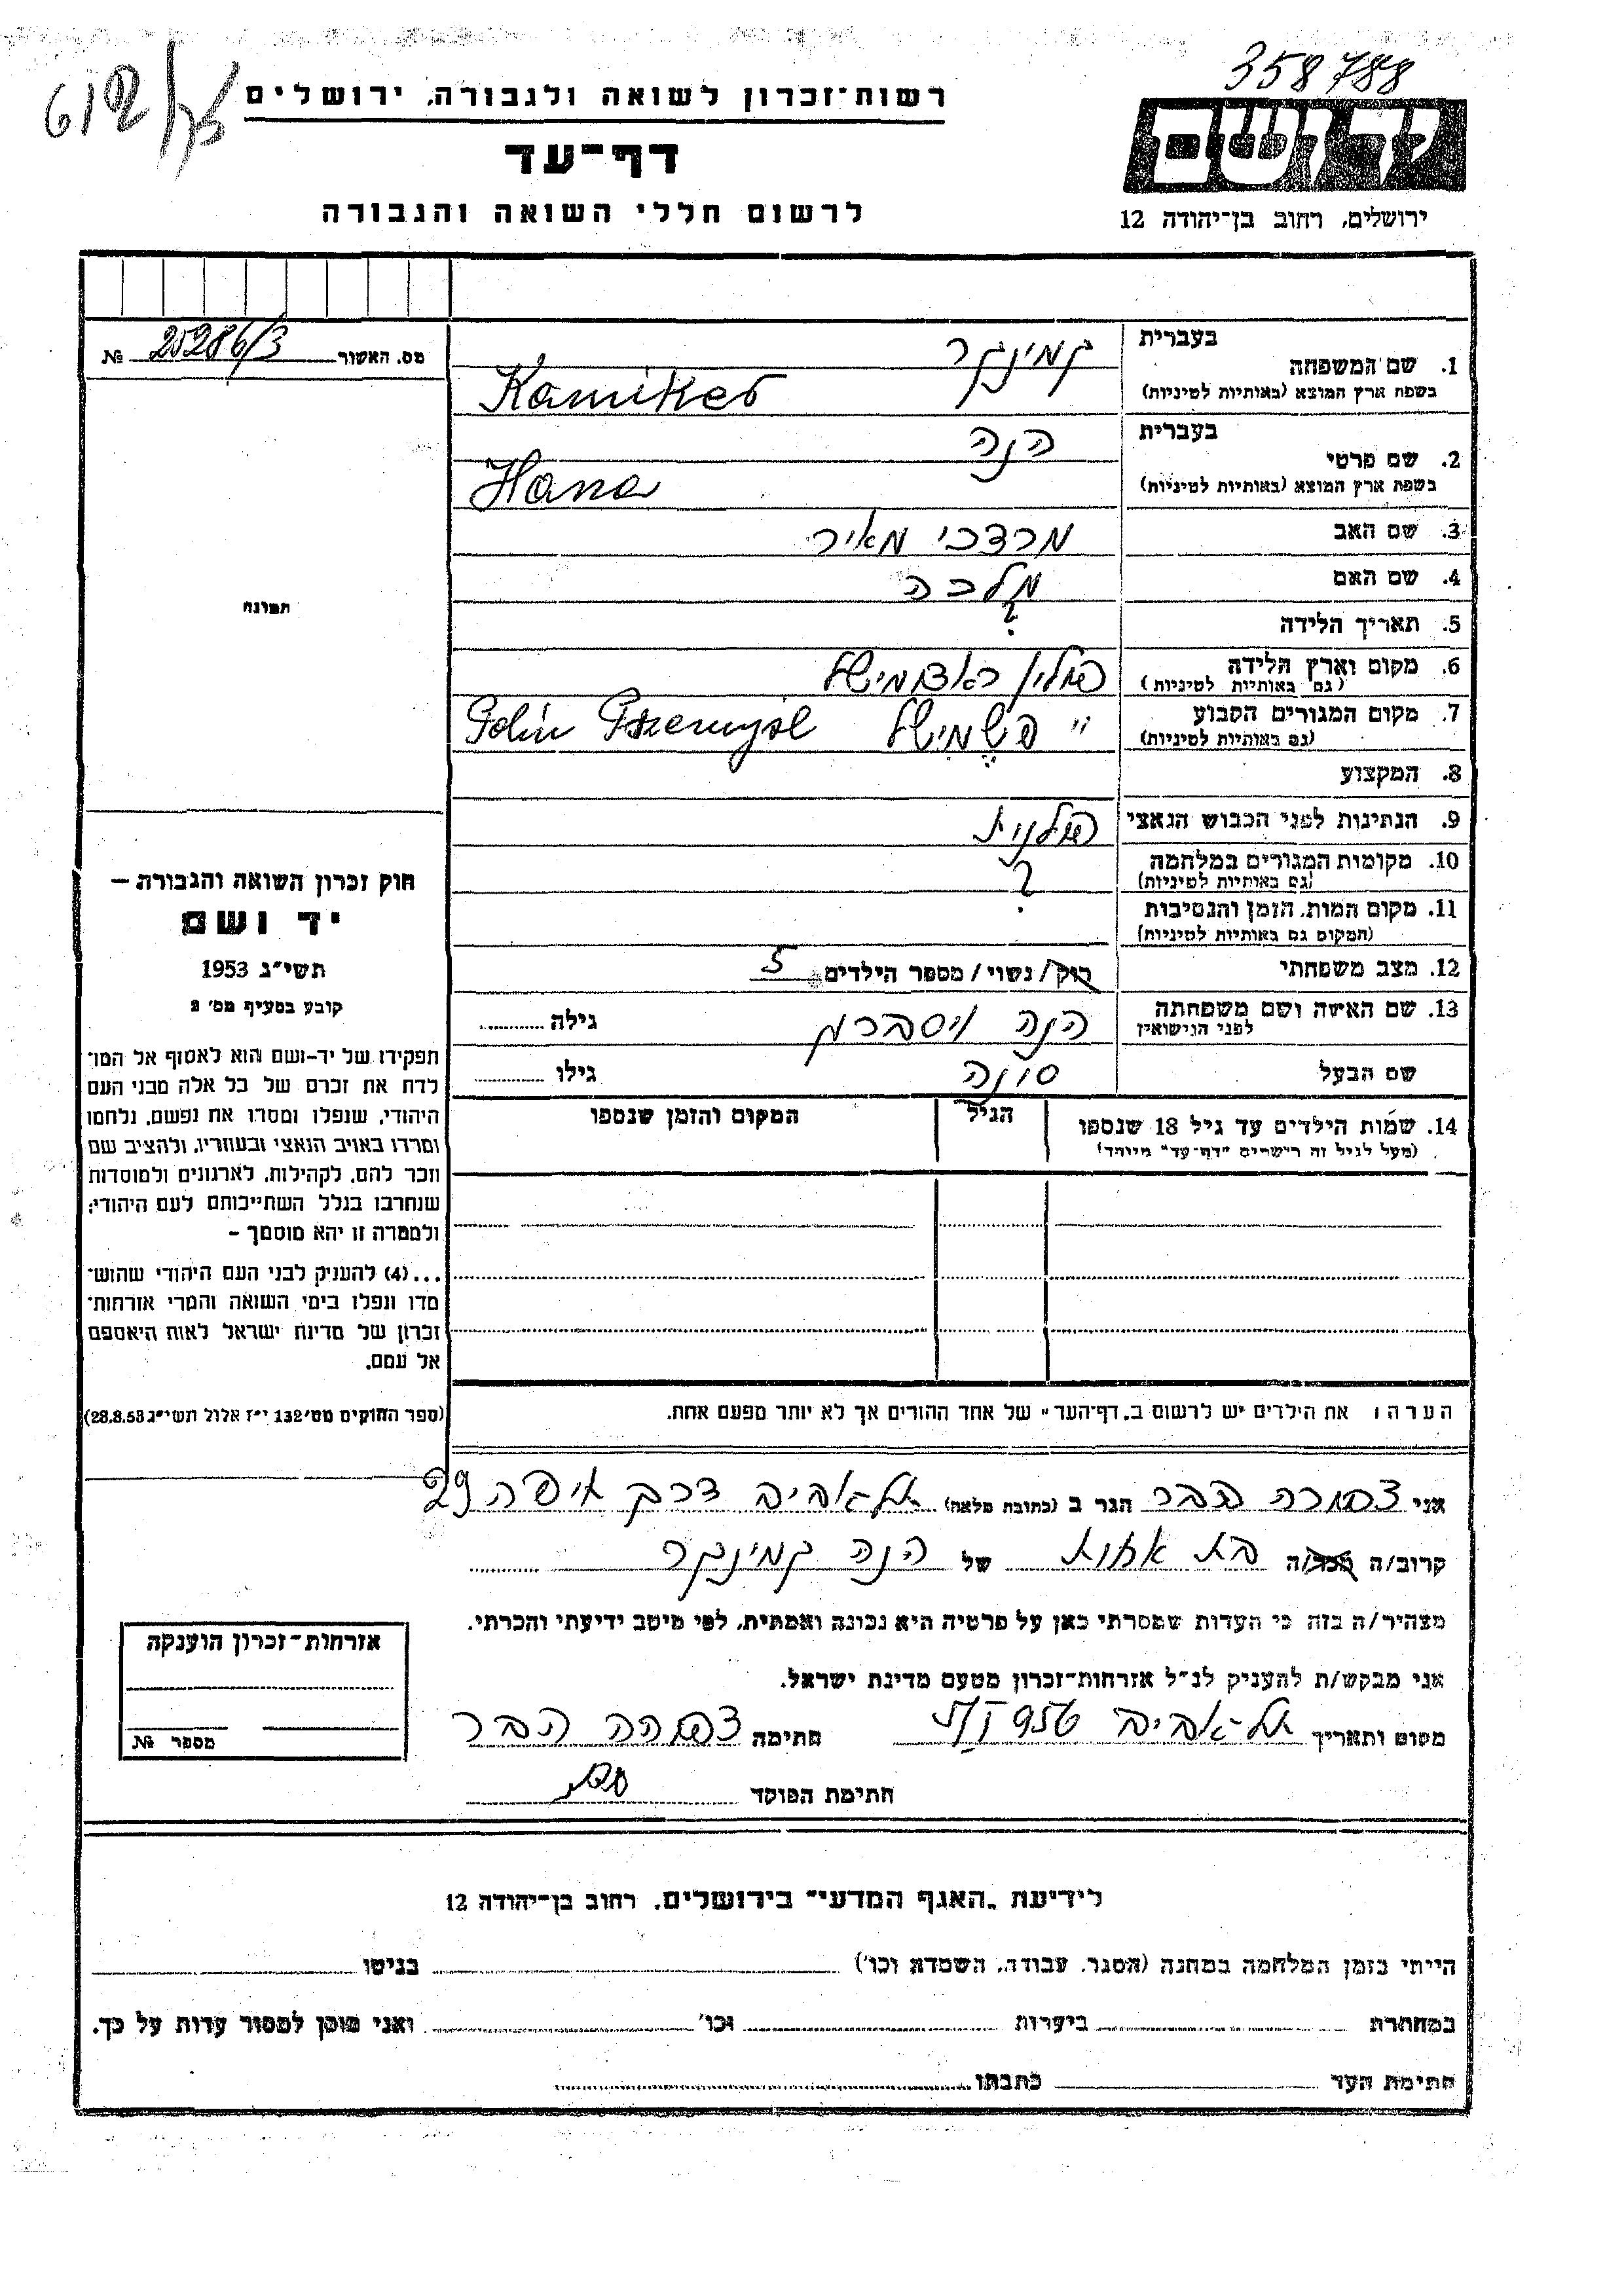 358788
רשות־זכרון לשואה ולגבורה, ירושלים
דף־עד
לרשום חללי השואה והגבורה
ירושלים, רחוב בן־יהודה 12
מס. האשור 25286/3 №
1. שם המשפחה בעברית קמינקר
בשפת ארץ המוצא (באותיות לטיניות) Kamiker
2. שם פרטי בעברית הנה
בשפת ארץ המוצא (באותיות לטיניות) Hana
3. שם האב מרדכי מאיר
4. שם האם מלכה
5. תאריך הלידה ?
6. מקום וארץ הלידה (גם באותיות לטיניות) פולין
7. מקום המגורים הקבוע (גם באותיות לטיניות) " פשמישל Polin Pszemysl
8. המקצוע
9. הנתינות לפני הכבוש הנאצי פולנית
10. מקומות המגורים במלחמה (גם באותיות לטיניות) ?
11. מקום המות, הזמן והנסיבות (המקום גם באותיות לטיניות)
12. מצב משפחתי רוק/נשוי/מספר הילדים 5
13. שם האשה ושם משפחתה לפני הנישואין הנה גילה
שם הבעל גילו
14. שמות הילדים עד גיל 18 שנספו הגיל המקום והזמן שנספו
(מעל לגיל זה רושמים "דף־עד" מיוחד)
תמונה
חוק זכרון השואה והגבורה —
יד ושם
תשי״ג 1953
קובע בסעיף מס׳ 2
תפקידו של יד-ושם הוא לאסוף אל המו־
לדת את זכרם של כל אלה מבני העם
היהודי, שנפלו ומסרו את נפשם, נלחמו
ומרדו באויב הנאצי ובעוזריו, ולהציב שם
וזכר להם, לקהילות, לארגונים ולמוסדות
שנחרבו בגלל השתייכותם לעם היהודי;
ולמטרה זו יהא מוסמך –
...(4) להעניק לבני העם היהודי שהוש־
מדו ונפלו בימי השואה והמרי אזרחות־
זכרון של מדינת ישראל לאות היאספם
אל עמם.
(ספר החוקים מס׳ 132 י״ז אלול תשי״ג 28.8.53)
הערה: את הילדים יש לרשום ב„דף־העד" של אחד ההורים אך לא יותר מפעם אחת.
אני צפורה הבר הגר ב (כתובת מלאה) תל אביב דרך 29
קרוב/ה מכר/ה בת אחות של הנה קמינקר
מצהיר/ה בזה כי העדות שמסרתי כאן על פרטיה היא נכונה ואמתית, לפי מיטב ידיעתי והכרתי.
אני מבקש/ת להעניק לנ״ל אזרחות־זכרון מטעם מדינת ישראל.
מקום ותאריך תל אביב חתימה צפורה הבר
חתימת הפוקד
אזרחות־זכרון הוענקה
מספר №
לידיעת „האגף המדעי" בירושלים, רחוב בן־יהודה 12
הייתי בזמן המלחמה במחנה (הסגר, עבודה, השמדה וכו׳) בגיטו
במחתרת ביערות וכו׳ ואני מוכן למסור עדות על כך.
חתימת העד כתבתו